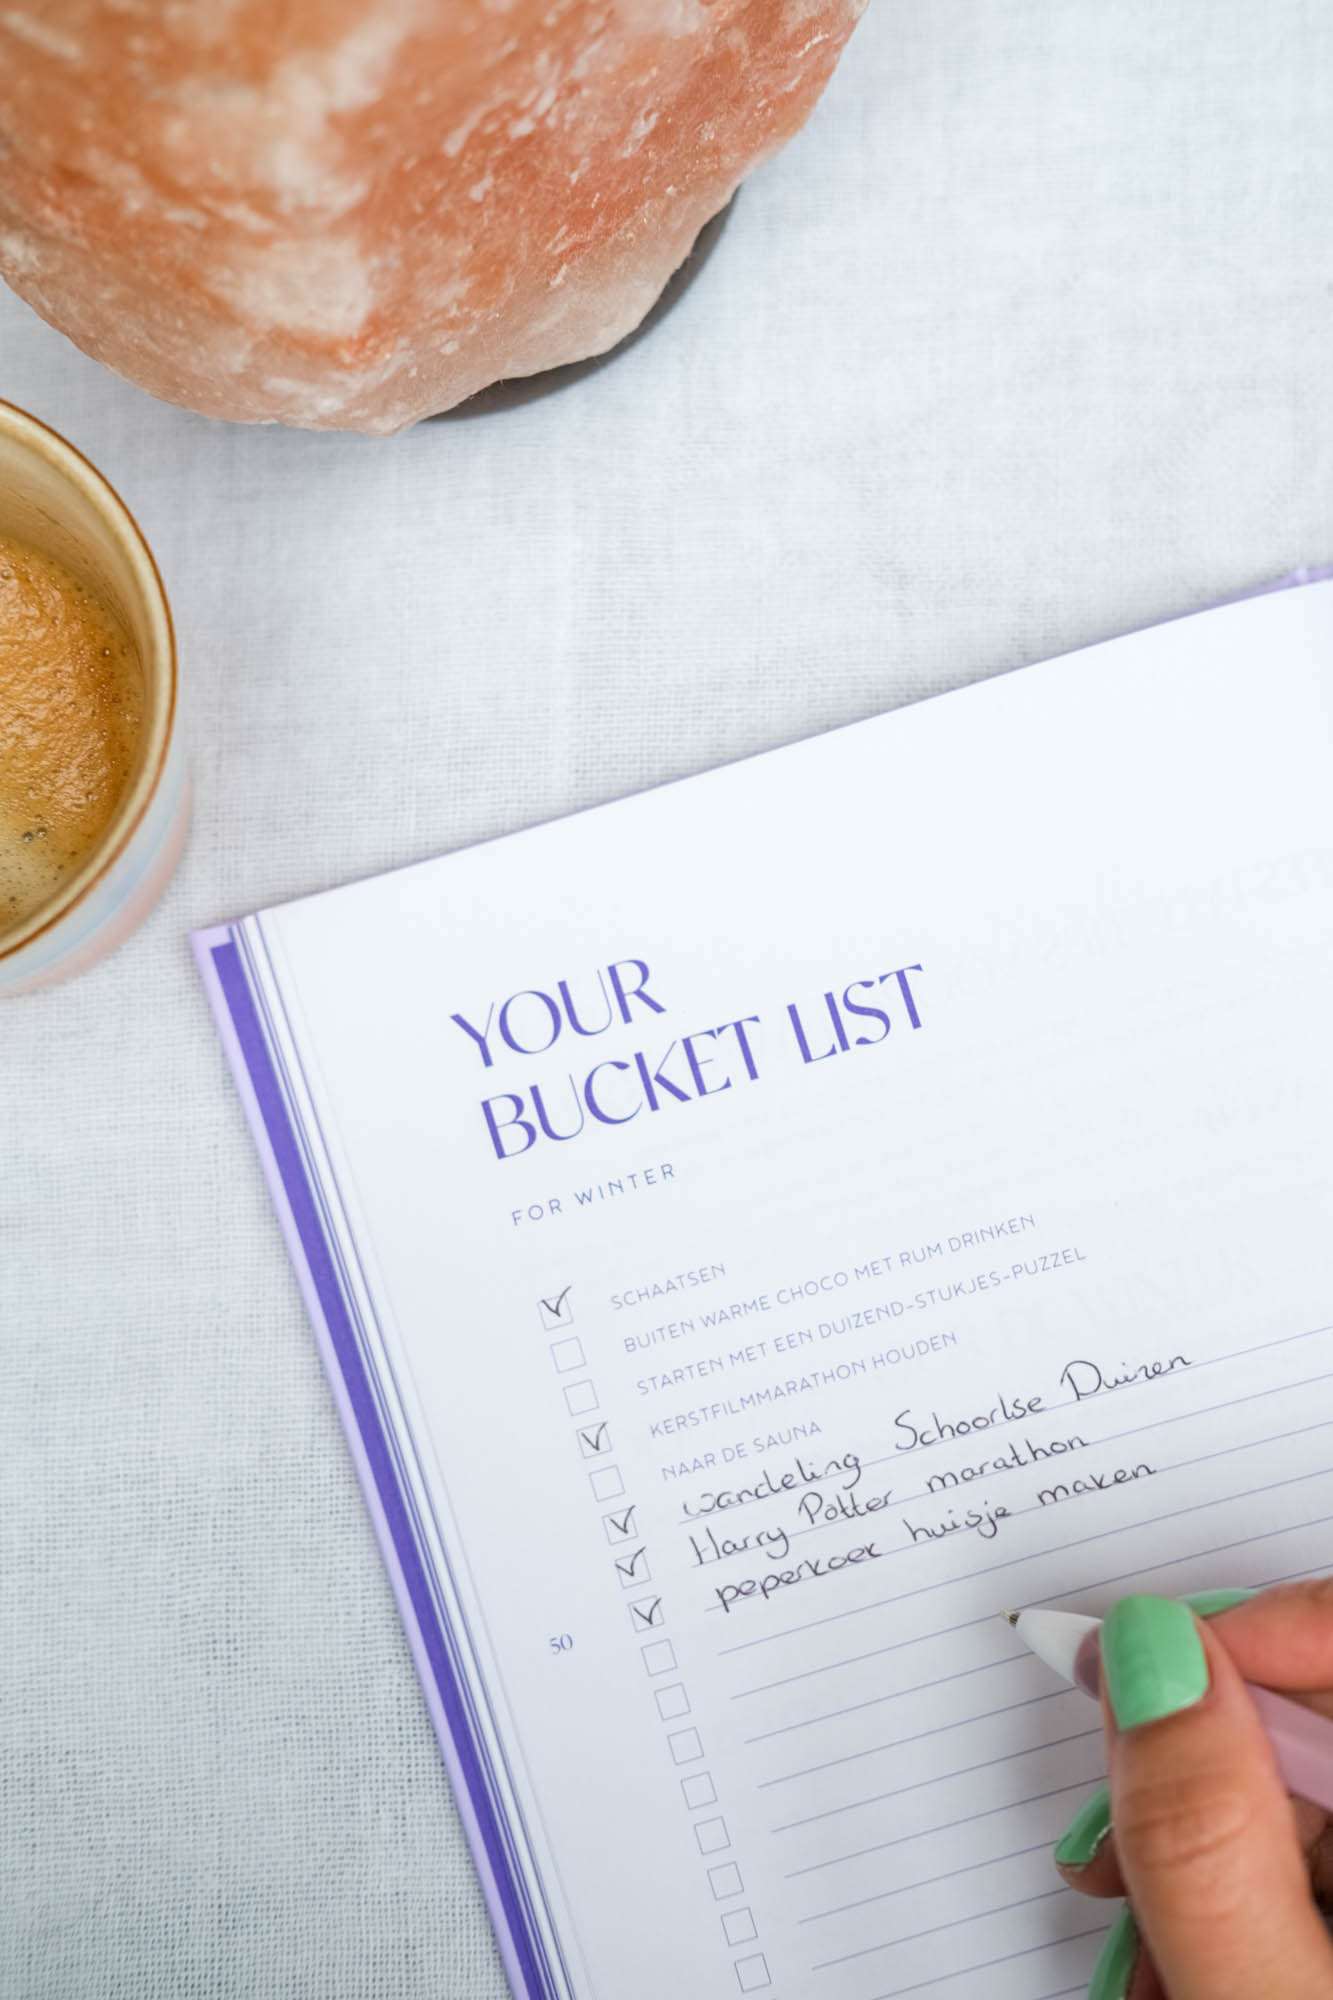 YOUR
BUCKET LIST
FOR WINTER
SCHAATSEN
BUITEN WARME CHOCO MET RUM DRINKEN
STARTEN MET EEN DUIZEND-STUKJES-PUZZEL
KERSTFILMMARATHON HOUDEN
NAAR DE SAUNA
wandeling Schoorlse Duinen
Harry Potter marathon
peperkoek huisje maken
50